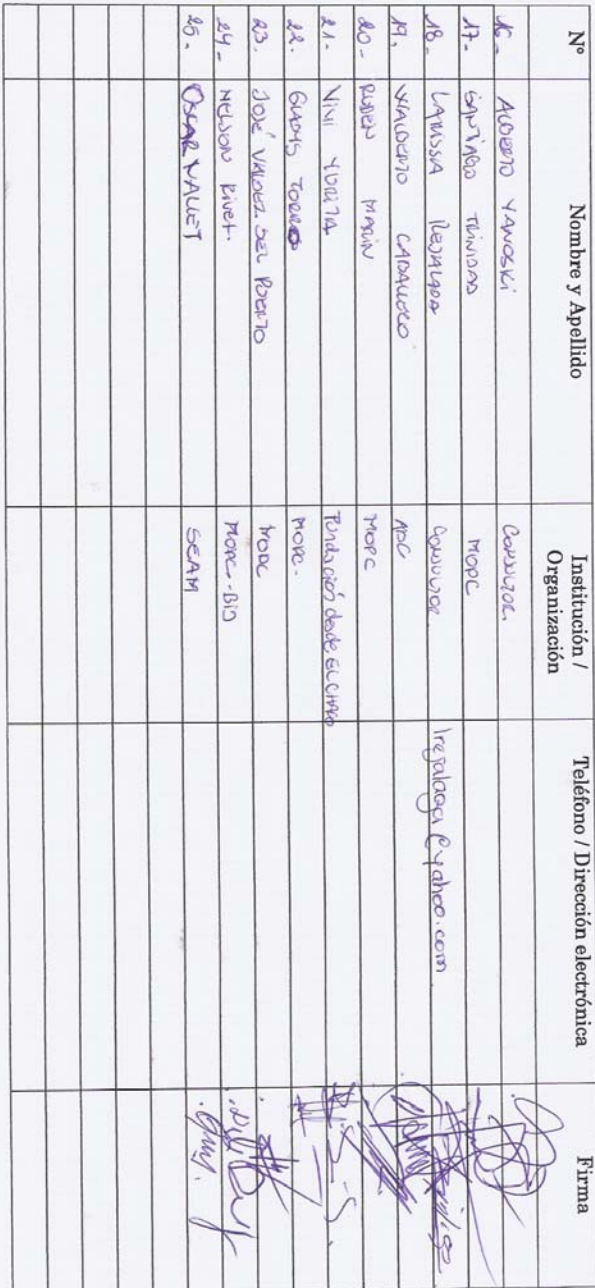 Nº Nombre y Apellido Institución / Organización Teléfono / Dirección electrónica Firma
16- ALBERTO YANOSKI CONSULTOR.
17- SANTIAGO TRINIDAD MOPC
18- LARISSA REJALAGA CONSULTOR lrejalaga@yahoo.com
19. WALBERTO CABALLERO ADC
20- RUBEN MARIN MOPC
21- VIVI YURITA Fundación desde EL CHACO
22. GLADYS TORRES MOPC.
23. JOSÉ VALDEZ DEL PUERTO MOPC
24- NELSON Rivet. MOPC-BID
25- OSCAR VALLET SEAM